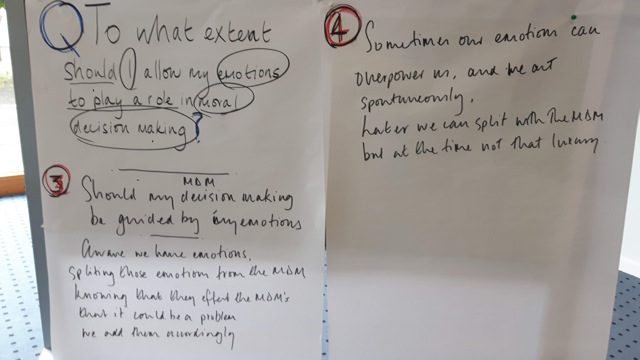 Q To what extent
should I allow my emotions
to play a role in moral
decision making?
3
MDM
Should my decision making
be guided by my emotions
Aware we have emotions,
spliting those emotion from the MDM
knowing that they effect the MDM's
that it could be a problem
we add them accordingly
4
Sometimes our emotions can
overpower us, and we act
spontaneously.
Later we can split with the MDM
but at the time not that luxury